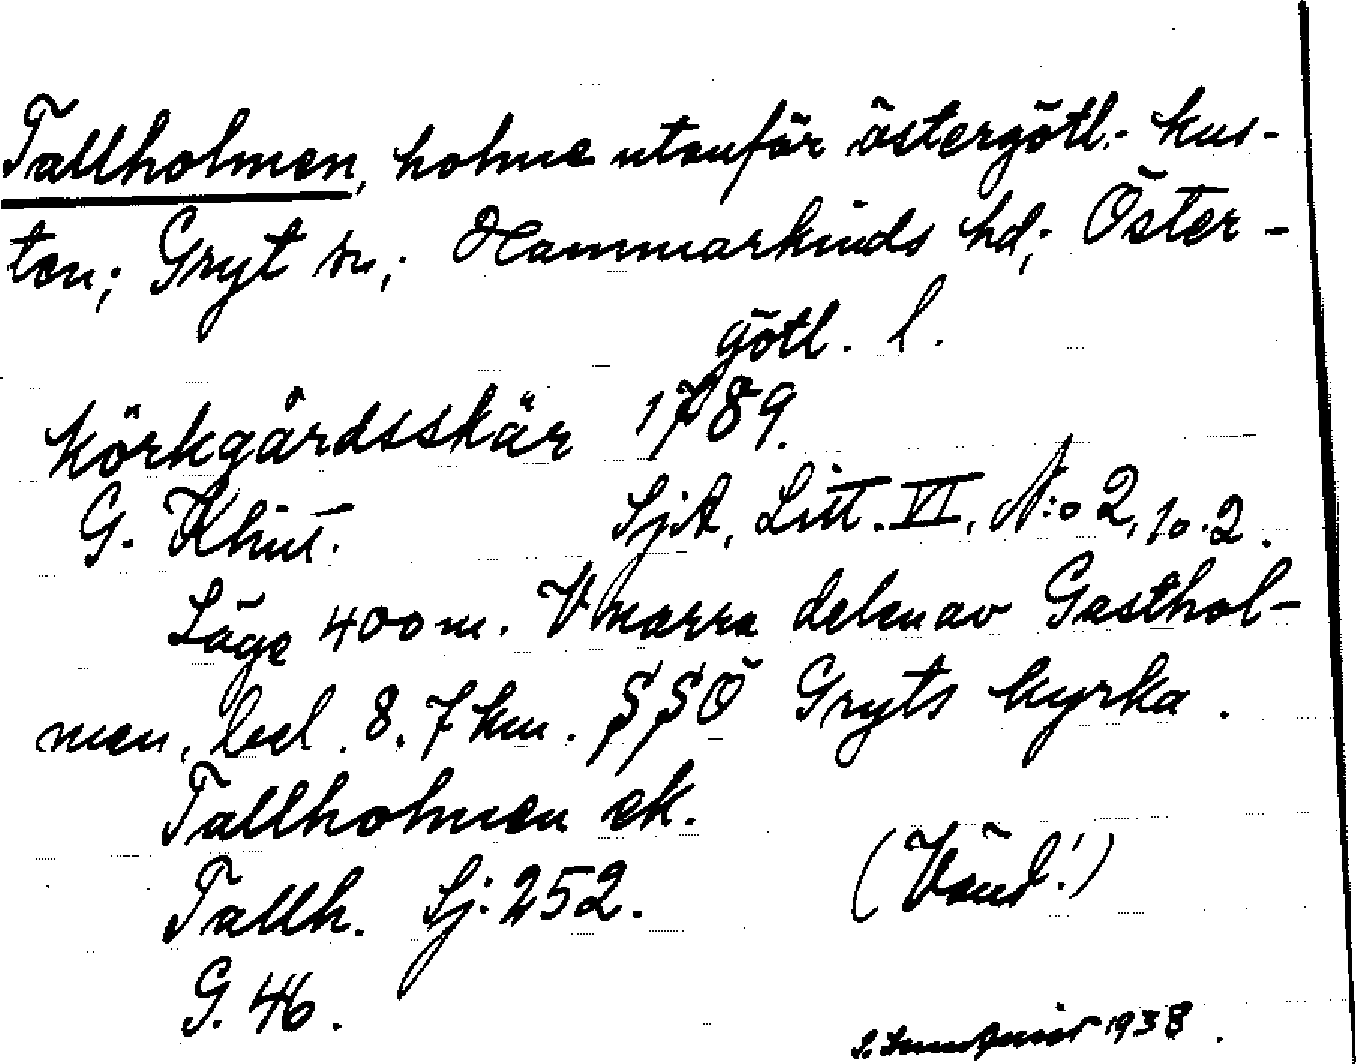 Tallholmen, holme utanför östergötl. kus-
ten; Gryt sn; Hammarkinds hd; Öster-
götl. l.
Körkgårdsskär 1789.
G. Klint. SjA, Litt. VI, N:o 2, 10.2.
Läge 400 m. V norra delen av Gasthol-
men, bel. 8.7 km. SSÖ Gryts kyrka.
Tallholmen ek.
Tallh. Sj: 252. (Vänd!)
G. 46.
1938.